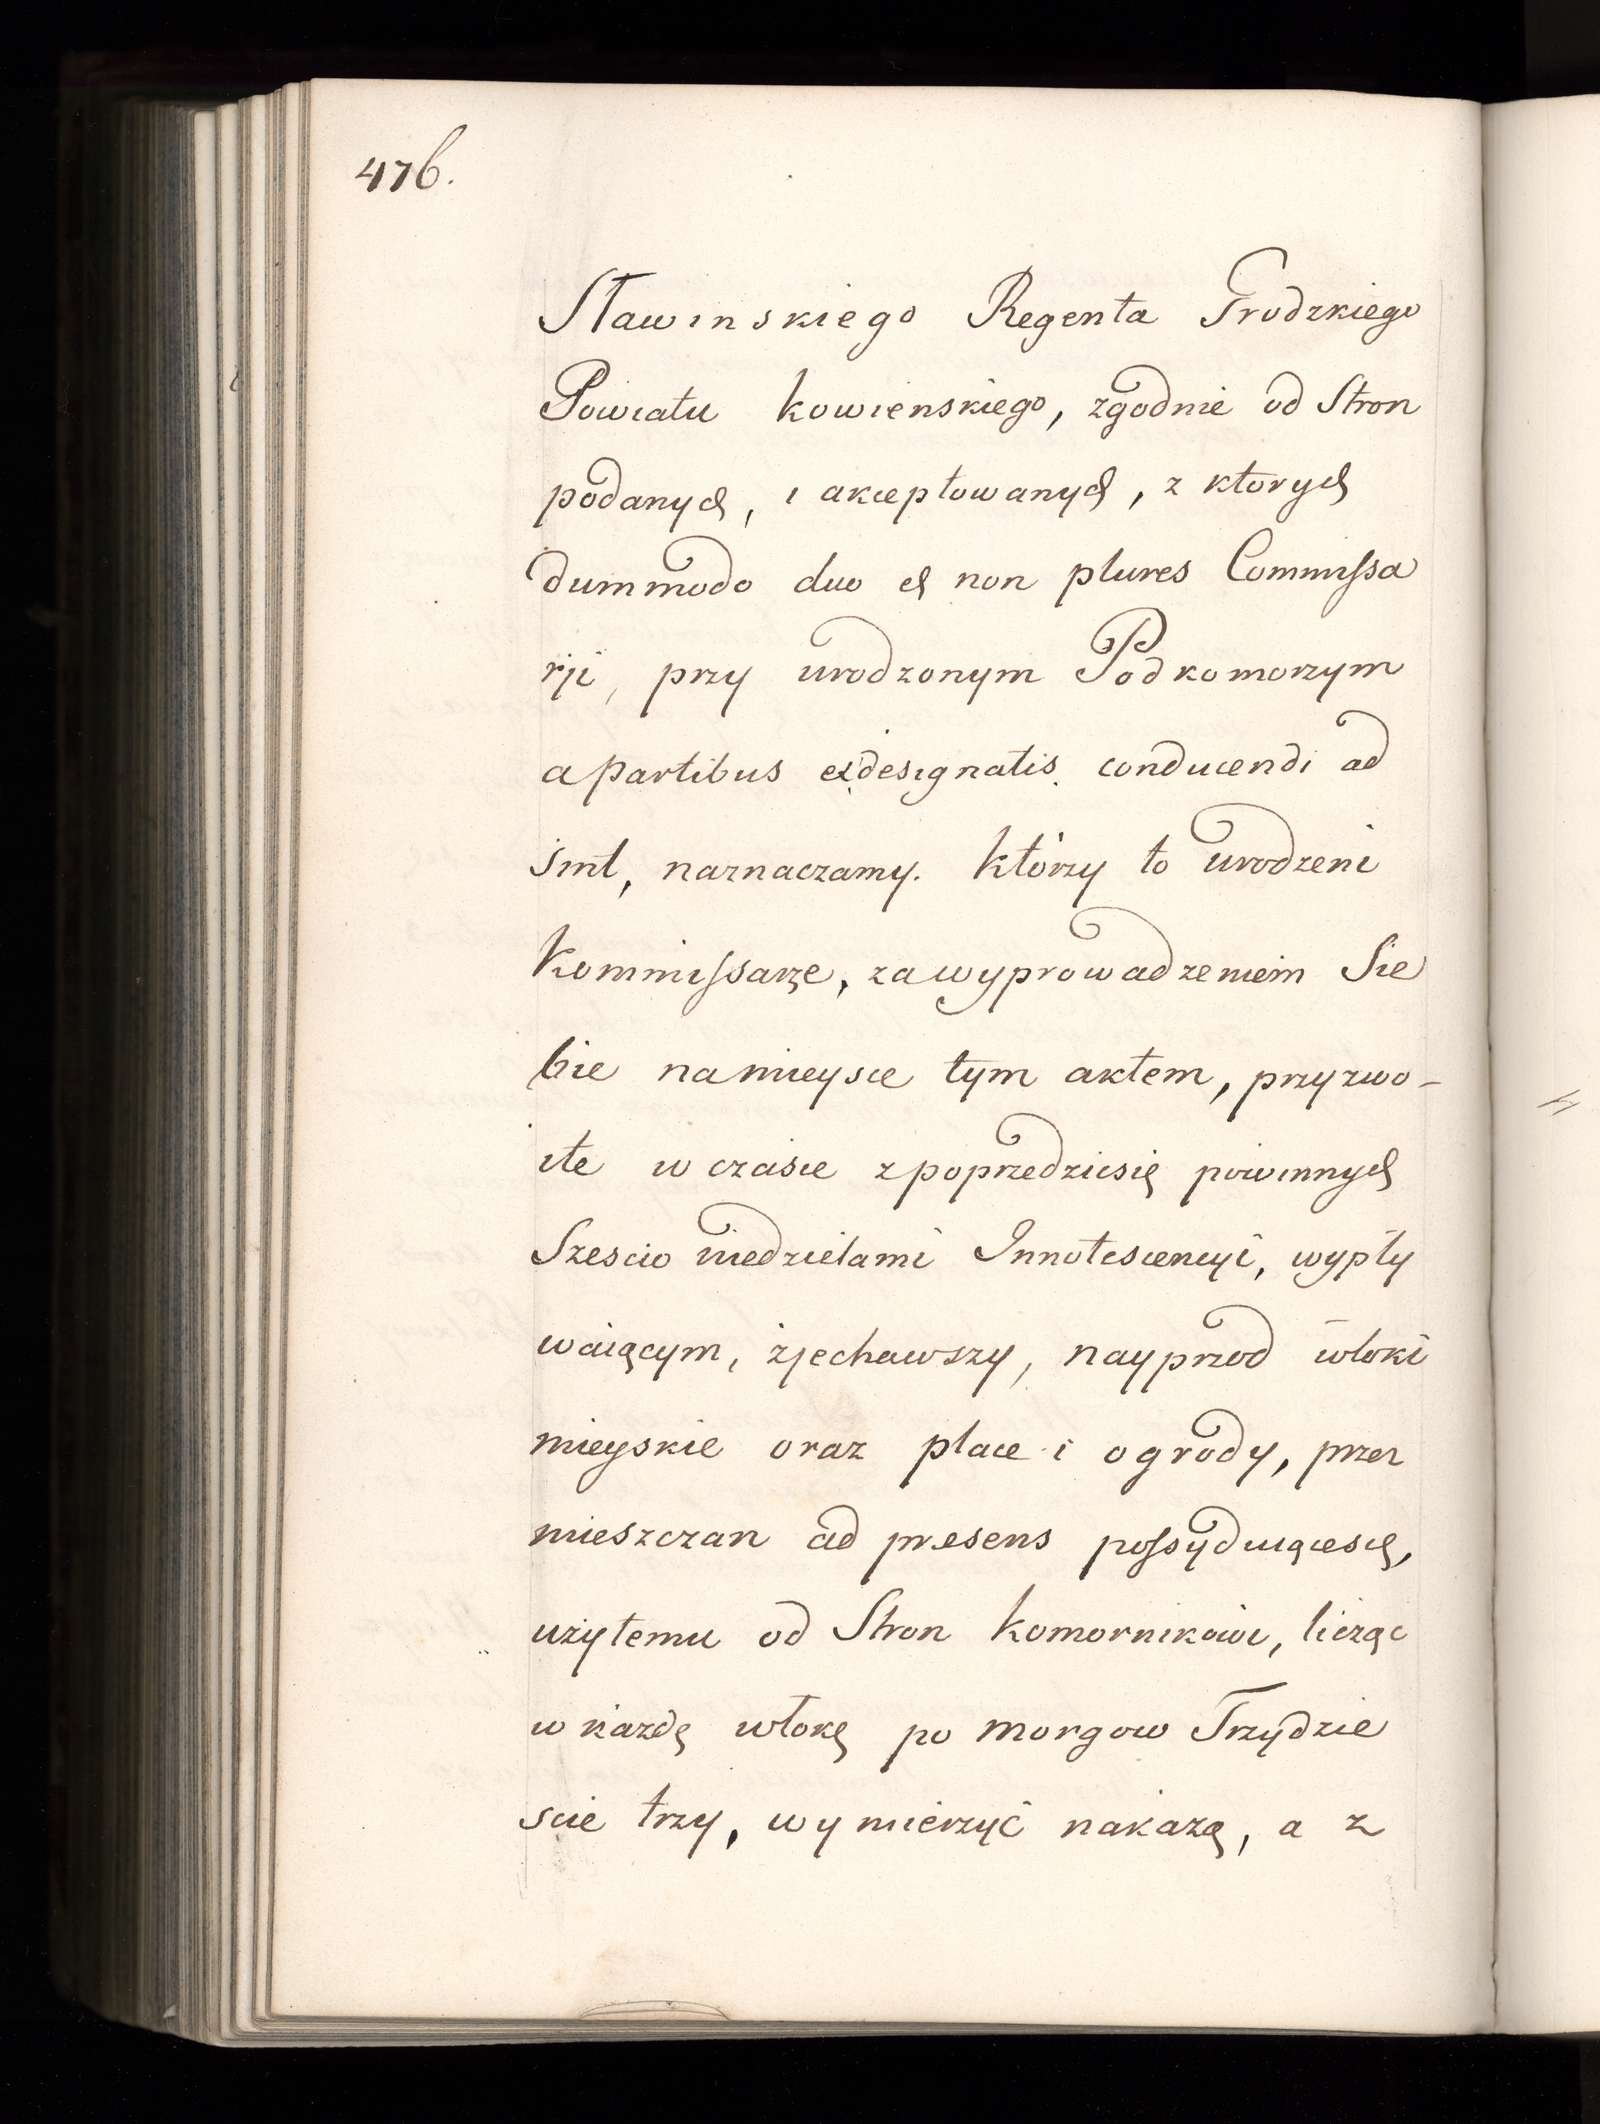 476.
Sławinskiego Regenta Grodzkiego
Powiatu kowienskiego, zgodnie od Stron
podanych, i akceptowanych, z ktorych
dummodo duo et non plures Commissa
rji, przy urodzonym Podkomorzym
a partibus ex designatis conducendi ad
sint, naznaczamy. Którzy to urodzeni
Kommissarze, za wyprowadzeniem Sie
bie na mieysce tym aktem, przyzwo-
ite w czasie z poprzedziesię powinnych
Szescio niedzielami Innotescencyi, wypły
waiącym, zjechawszy, nayprzod włoki
mieyskie oraz place i ogrody, przez
mieszczan ad presens possyduiącesię,
użytemu od Stron Komornikowi, licząc
w każdę włokę po morgow Trzydzie
scie trzy, wymierzyć nakażą, a z